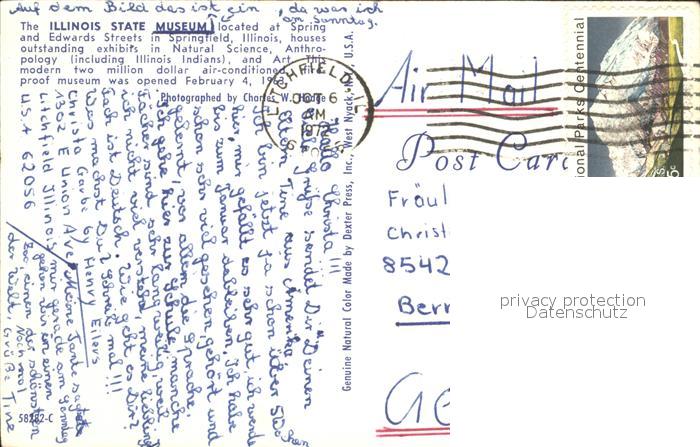 Auf dem Bild das ist ein, da was ich
am Sonntag.
The ILLINOIS STATE MUSEUM, located at Spring
and Edwards Streets in Springfield, Illinois, houses
outstanding exhibits in Natural Science, Anthro-
pology (including Illinois Indians), and Art. The
modern two million dollar air-conditioned,
proof museum was opened February 4, 196
Photographed by Charles W. Hodge
Genuine Natural Color Made by Dexter Press, Inc., West Nyack, U.S.A.
LITCHFIELD, IL
OCT 6
PM
1972
National Parks Centennial
Air Mail
Post Car
Hallo Christa!!!
Viele Grüße sendet Dir Deinen
Eltern Tine aus Amerika
Ich bin jetzt ja schon über 5 Wochen
hier, mir gefällt es sehr gut, ich werde
bis zum Januar dableiben. Ich habe
schon sehr viel gesehen, gehört und
gelernt, vor allem die Sprache
Ich gehe hier zur Schule, manche
Fächer sind sehr langweilig, weil
ich nicht viel versteh, meine lieblings
Fach ist Deutsch. Wie geht es Dir?
Was machst Du? Schreib mal!!!
Christa Grabe by Henry Eilers
1302 E Union Ave
Litchfield Illinois
USA 62056
Meine Tante sagte
mir gerade am
gehen wir in einen
Zoo, einen der schönsten
der Welt,
Noch mal
Grüße Tine
58282-C
Fräul
Christ
8542
Berr
Ge
privacy protection
Datenschutz